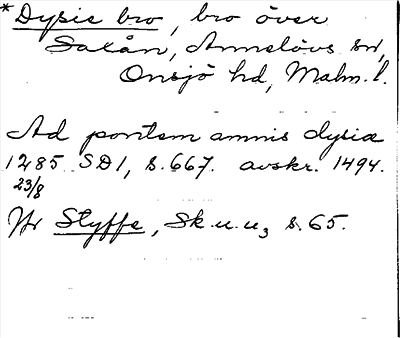 *Dysie bro, bro över
Saxån, Annelövs sn,
Onsjö hd, Malm. l.
Ad pontem amnis dysiæ
1285 SD1, s. 667. avskr. 1494.
23/8
Jfr Styffe, Sk.u.u3 s. 65.